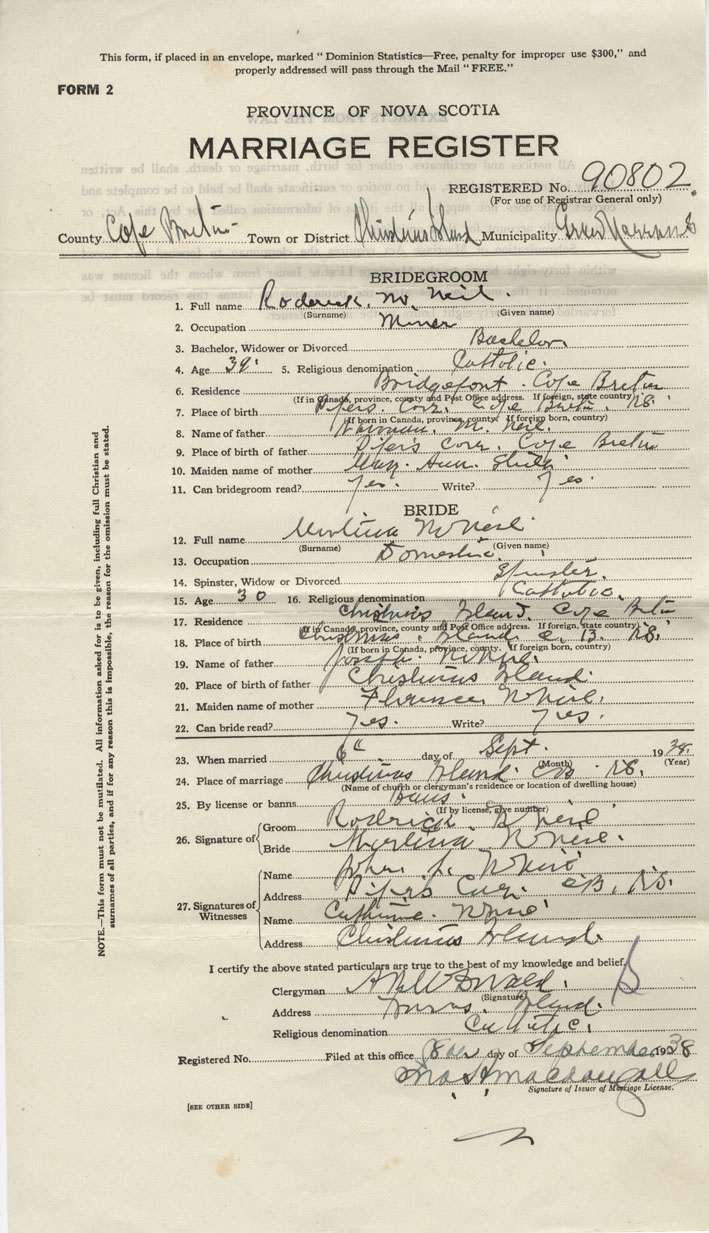 This form, if placed in an envelope, marked "Dominion Statistics—Free, penalty for improper use $300," and
properly addressed will pass through the Mail "FREE."
FORM 2
PROVINCE OF NOVA SCOTIA
MARRIAGE REGISTER
REGISTERED No. 90802.
(For use of Registrar General only)
County Cape Breton Town or District Christmas Island Municipality
BRIDEGROOM
1. Full name Roderick. McNeil.
(Surname) (Given name)
2. Occupation Miner
3. Bachelor, Widower or Divorced Bachelor
4. Age 39 5. Religious denomination Catholic.
6. Residence Bridgeport. Cape Breton
(If in Canada, province, county and Post Office address. If foreign, state country)
7. Place of birth Pipers. Cove. Cape Breton. N.S.
(If born in Canada, province, county. If foreign born, country)
8. Name of father McNeil.
9. Place of birth of father Pipers Cove. Cape Breton
10. Maiden name of mother Mary. Ann.
11. Can bridegroom read? Yes. Write? Yes.
BRIDE
12. Full name McNeil.
(Surname) (Given name)
13. Occupation Domestic.
14. Spinster, Widow or Divorced Spinster.
15. Age 30 16. Religious denomination Catholic.
17. Residence Christmas Island. Cape Breton
(If in Canada, province, county and Post Office address. If foreign, state country)
18. Place of birth Christmas Island C. B. N.S.
(If born in Canada, province, county. If foreign born, country)
19. Name of father Joseph. McNeil.
20. Place of birth of father Christmas Island.
21. Maiden name of mother Florence McNeil.
22. Can bride read? Yes. Write? Yes.
23. When married 6th day of Sept. 1938.
(Month) (Year)
24. Place of marriage Christmas Island. N.S.
(Name of church or clergyman's residence or location of dwelling house)
25. By license or banns Banns.
(If by license, give number)
26. Signature of
Groom Roderick McNeil
Bride McNeil.
27. Signatures of Witnesses
Name John J. McNeil
Address Pipers Cove. C.B. N.S.
Name Catherine. McNeil
Address Christmas Island.
I certify the above stated particulars are true to the best of my knowledge and belief.
Clergyman McDonald.
(Signature)
Address Island.
Religious denomination Catholic.
Registered No. Filed at this office 8th day of September 1938
MacDougall
Signature of Issuer of Marriage License.
[SEE OTHER SIDE]
NOTE.—This form must not be mutilated. All information asked for is to be given, including full Christian and
surnames of all parties, and if for any reason this is impossible, the reason for the omission must be stated.